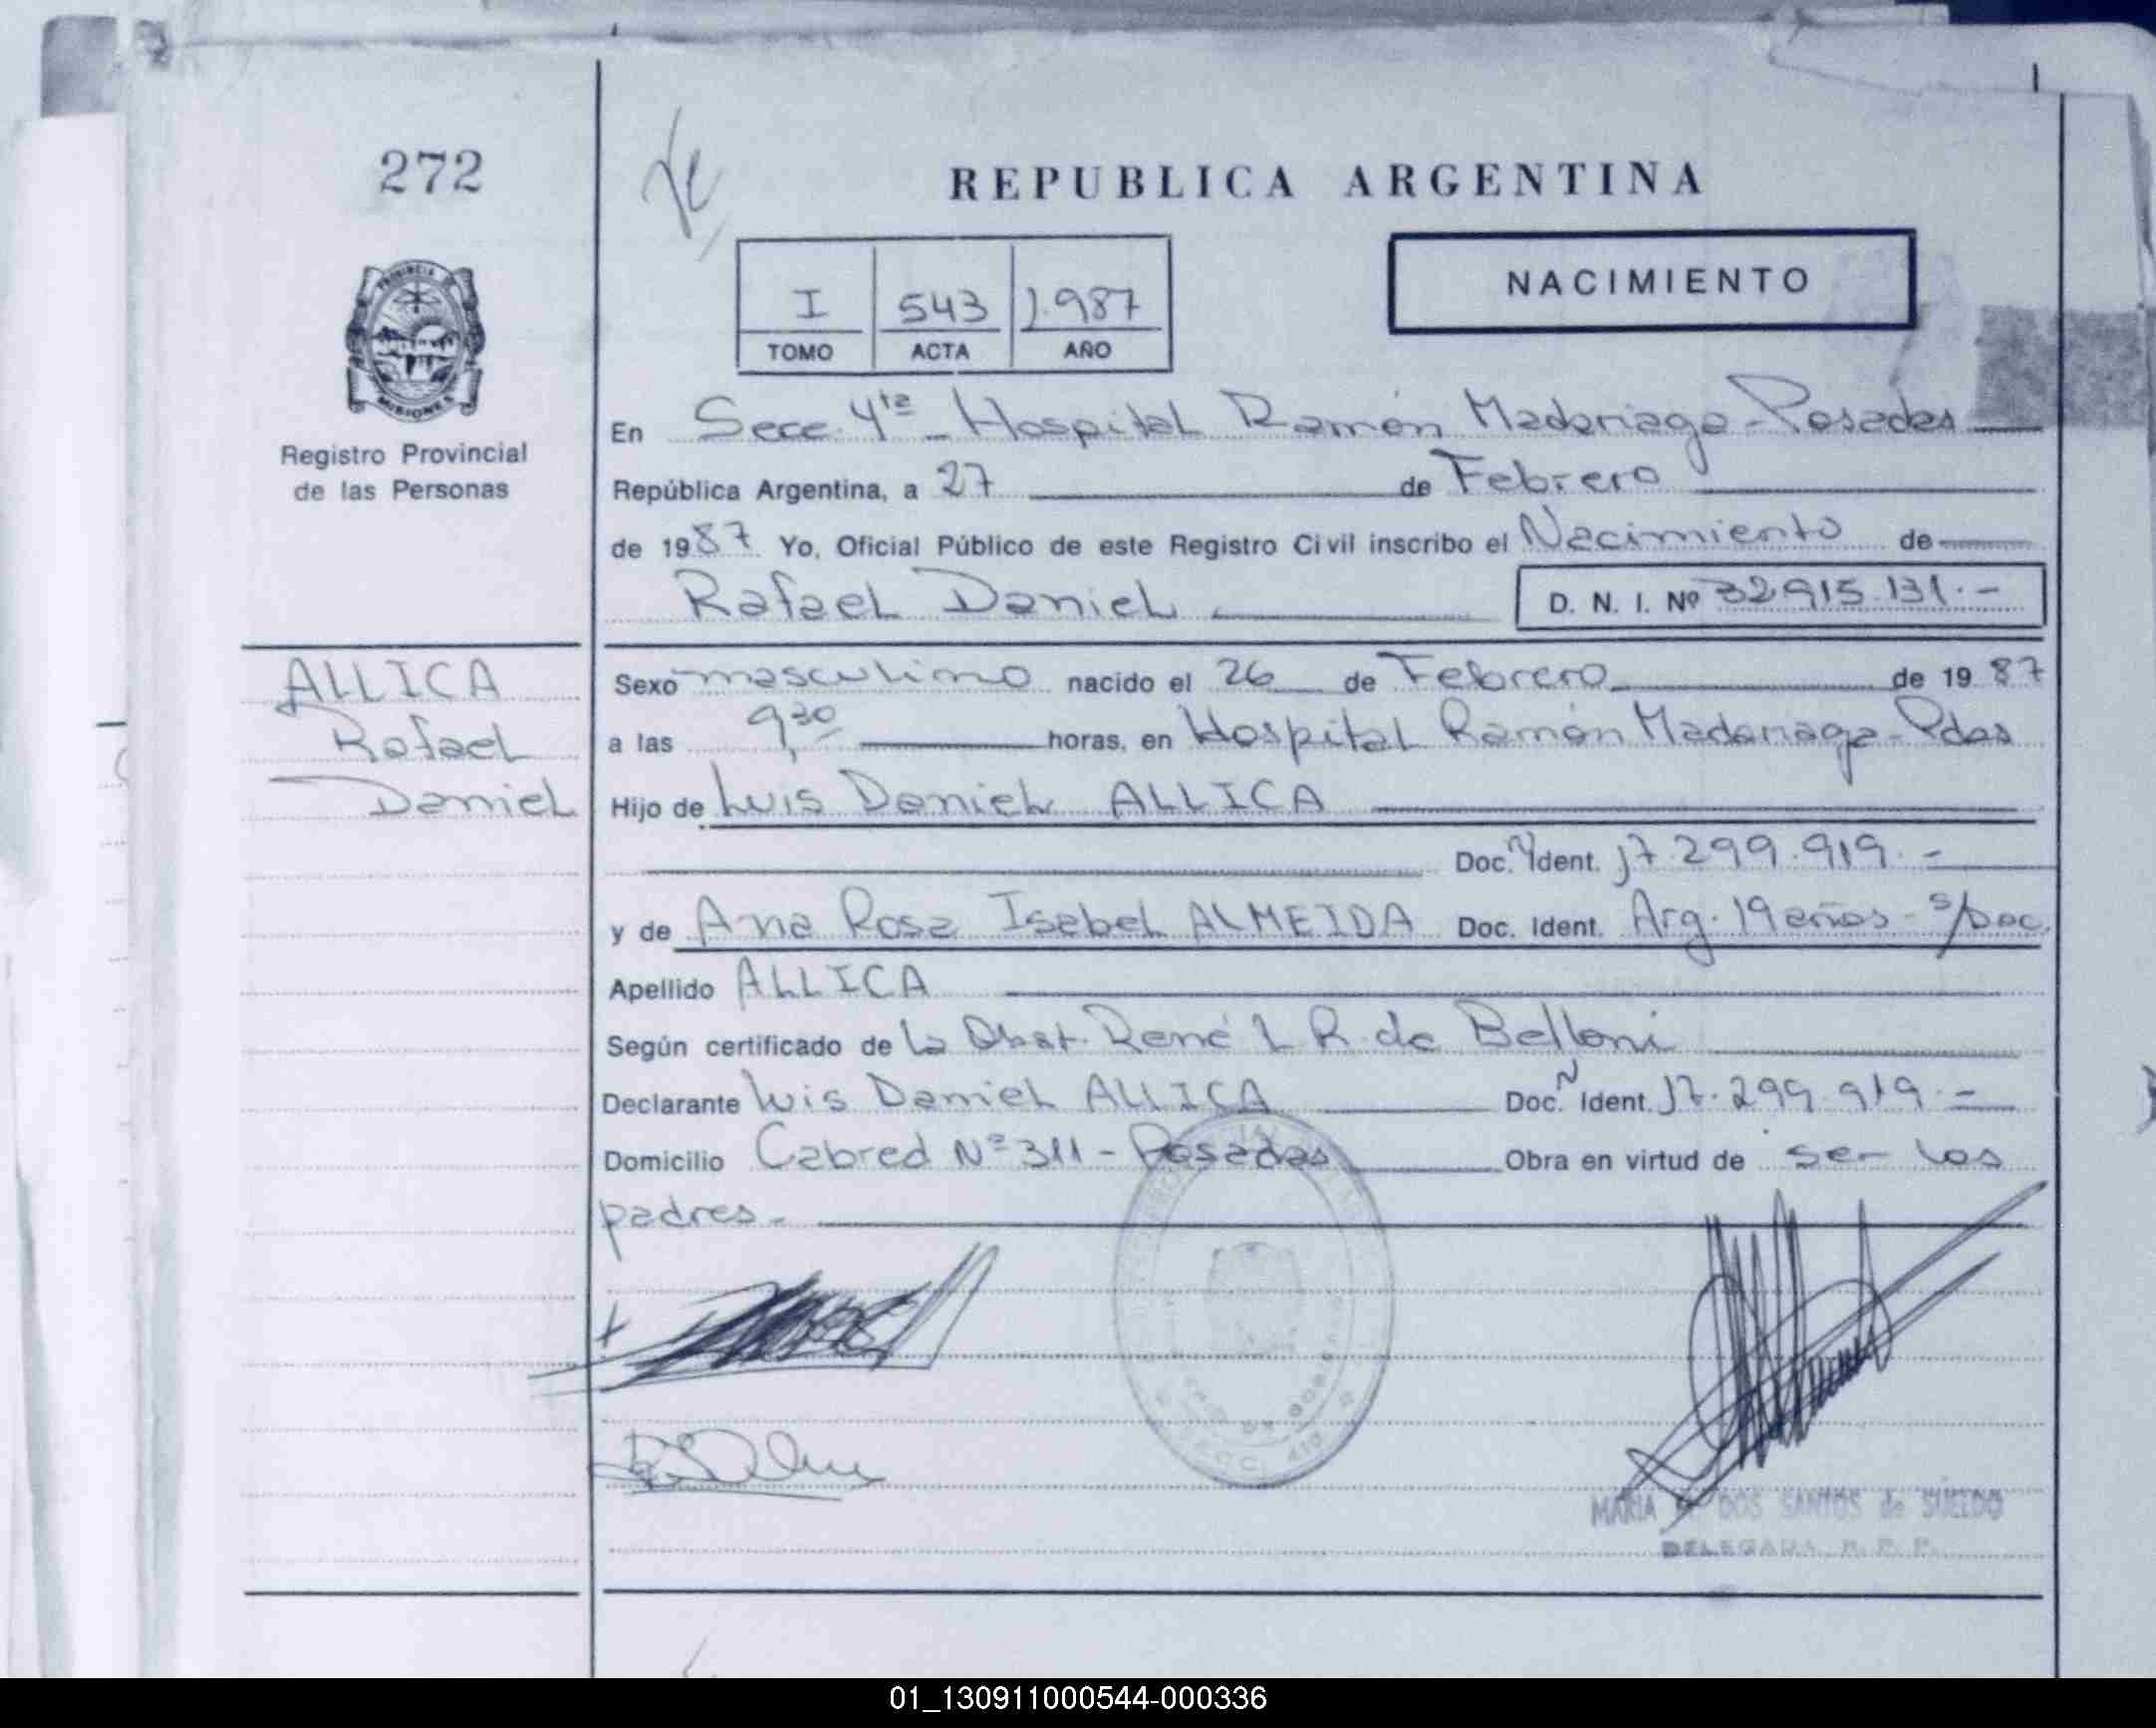 272
REPUBLICA ARGENTINA
PROVINCIA DE
MISIONES
Registro Provincial
de las Personas
I 543 1.987
TOMO ACTA AÑO
NACIMIENTO
En Secc. 4ta - Hospital Ramón Madariaga - Posadas
República Argentina, a 27 de Febrero
de 1987 Yo, Oficial Público de este Registro Civil inscribo el Nacimiento de
Rafael Daniel D. N. I. Nº 32.915.131.-
ALLICA
Rafael
Daniel
Sexo masculino nacido el 26 de Febrero de 1987
a las 9,30 horas, en Hospital Ramón Madariaga - Pdas
Hijo de Luis Daniel ALLICA
Doc. N Ident. 17.299.919.-
y de Ana Rosa Isabel ALMEIDA Doc. Ident. Arg. 19 años - s/Doc.
Apellido ALLICA
Según certificado de la Obst. René L R. de Belloni
Declarante Luis Daniel ALLICA Doc. N Ident. 17.299.919.-
Domicilio Cabred Nº 311 - Posadas Obra en virtud de ser los
padres.-
MARIA DOS SANTOS de SUELDO
DELEGADA R. P. P.
01_130911000544-000336